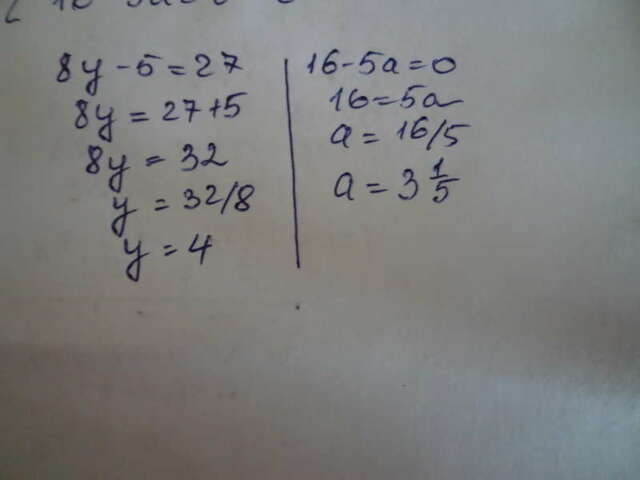 8y - 5 = 27
8y = 27+5
8y = 32
y = 32/8
y = 4
16-5a=0
16=5a
a = 16/5
a = 3 1/5